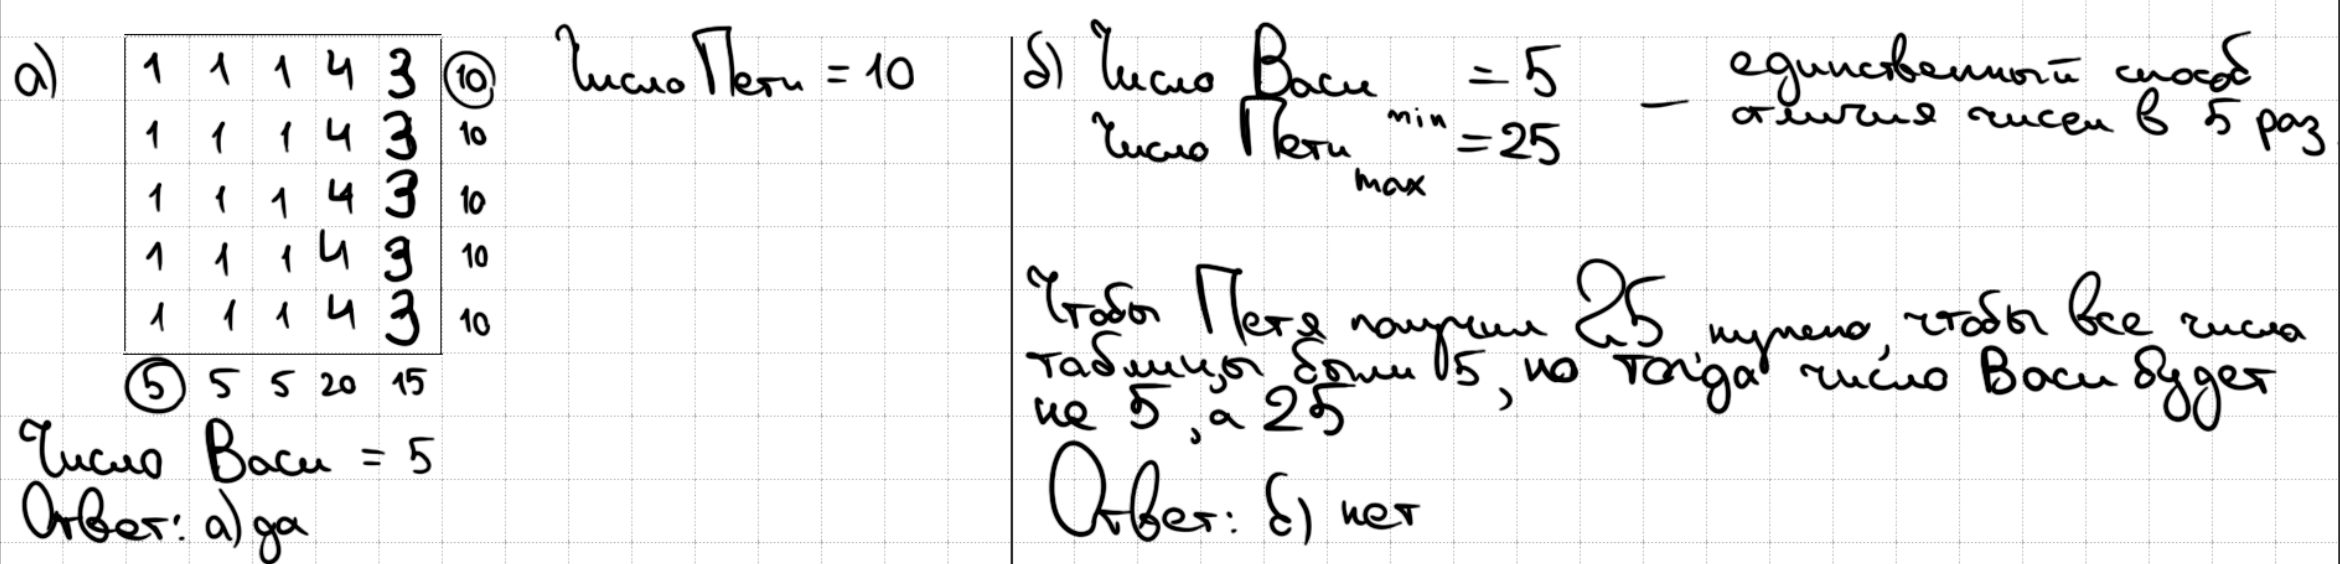 а) 1 1 1 4 3 10
1 1 1 4 3 10
1 1 1 4 3 10
1 1 1 4 3 10
1 1 1 4 3 10
5 5 5 20 15
Число Пети = 10
Число Васи = 5
Ответ: а) да
б) Число Васи min = 5
Число Пети max = 25
— единственный способ
отличия чисел в 5 раз
Чтобы Петя получил 25 нужно, чтобы все числа
таблицы были 5, но тогда число Васи будет
не 5, а 25
Ответ: б) нет